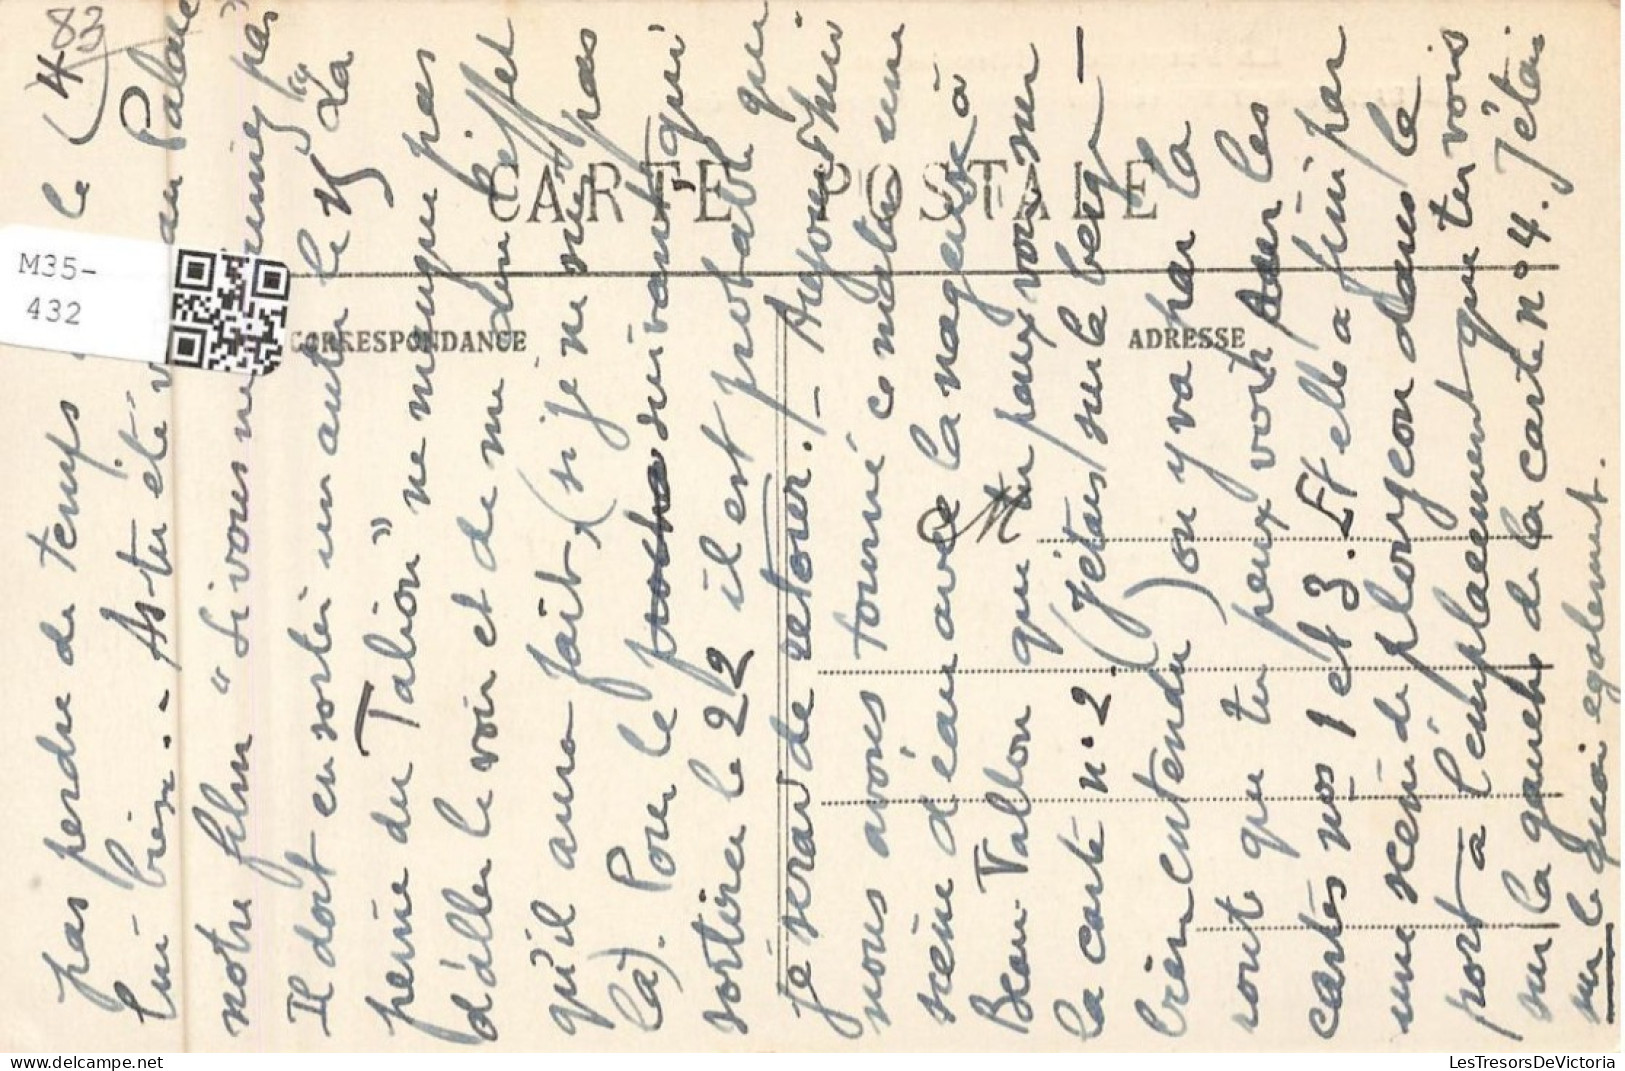 (4
83
pas perdre de temps le
lui bien. - As-tu été au Palace
notre film "Si vous ne pas
Il doit en sortir un autre le 15 "La
peine du Talion" ne manque pas
d'aller le voir et de me dire l'effet
qu'il aura fait, (si je ne suis pas
la). Pour le suivant qui
sortira le 22 il est probable que
je serai de retour. - Aujourd'hui
nous avons tourné ce matin une
scène d'eau avec la nageuse à
Beau Vallon que tu peux voir sur
la carte n° 2. (j'étais sur le berge -
bien entendu) on y va par la
route que tu peux voir sur les
cartes nos 1 et 3. Et elle a fini par
une scène de plongeon dans le
port à l'emplacement que tu vois
sur la gauche de la carte n° 4. J'étais
sur le quai également.
CARTE POSTALE
CORRESPONDANCE
ADRESSE
M
M35-
432
LesTresorsDeVictoria